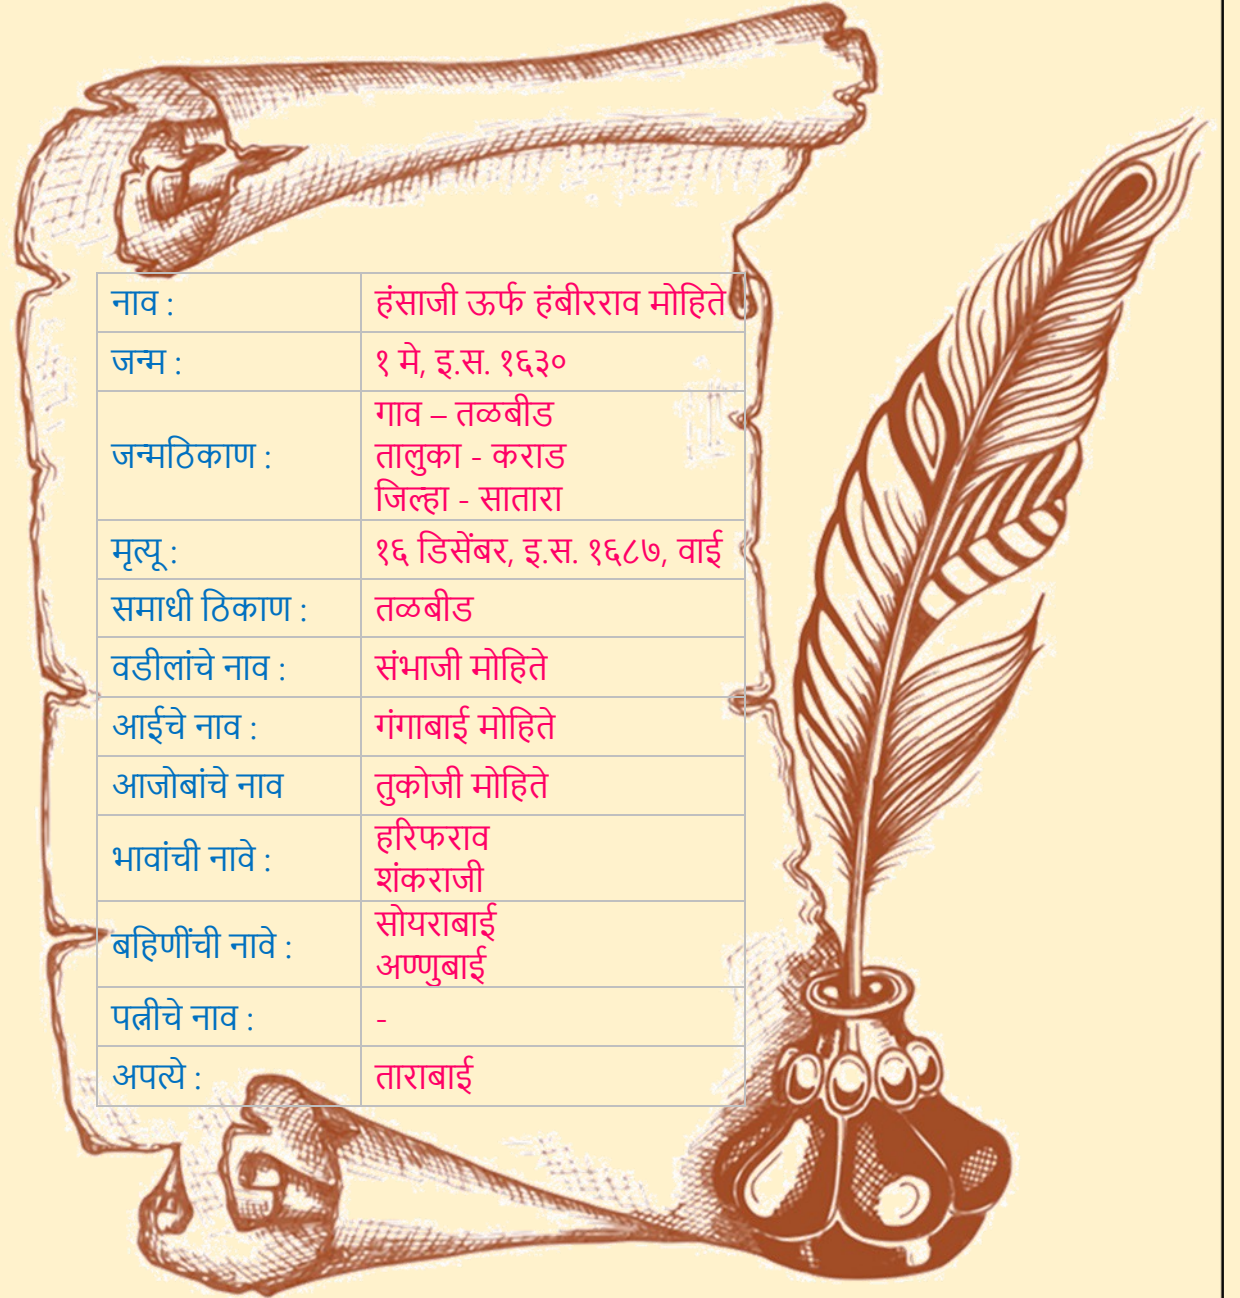 नाव : हंसाजी ऊर्फ हंबीरराव मोहिते
जन्म : १ मे, इ.स. १६३०
जन्मठिकाण : गाव – तळबीड
तालुका - कराड
जिल्हा - सातारा
मृत्यू : १६ डिसेंबर, इ.स. १६८७, वाई
समाधी ठिकाण : तळबीड
वडीलांचे नाव : संभाजी मोहिते
आईचे नाव : गंगाबाई मोहिते
आजोबांचे नाव तुकोजी मोहिते
भावांची नावे : हरिफराव
शंकराजी
बहिणींची नावे : सोयराबाई
अण्णुबाई
पत्नीचे नाव : -
अपत्ये : ताराबाई